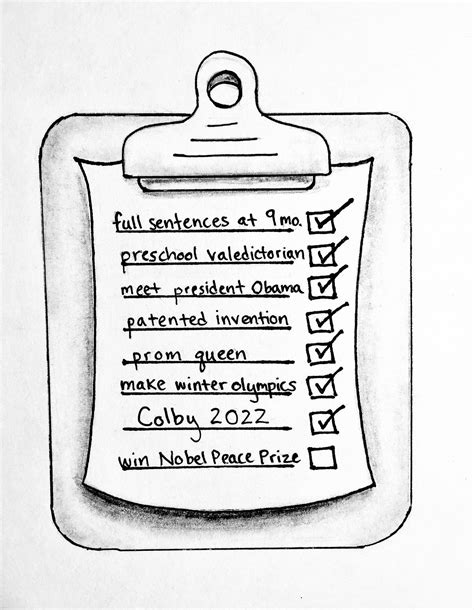 full sentences at 9mo.
preschool valedictorian
meet president Obama
patented invention
prom queen
make winter olympics
Colby 2022
win Nobel Peace Prize